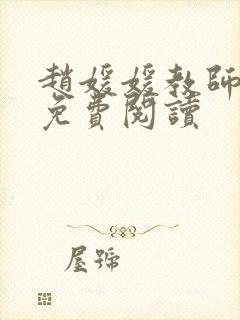 趙媛媛教師
免費閱讀
屋號